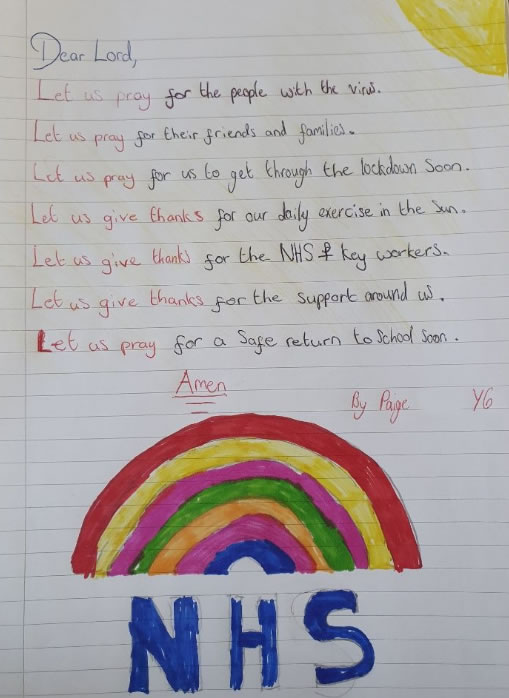 Dear Lord,
Let us pray for the people with the virus.
Let us pray for their friends and families.
Let us pray for us to get through the lockdown soon.
Let us give thanks for our daily exercise in the sun.
Let us give thanks for the NHS & key workers.
Let us give thanks for the support around us.
Let us pray for a safe return to school soon.
Amen
By Paige Y6
NHS